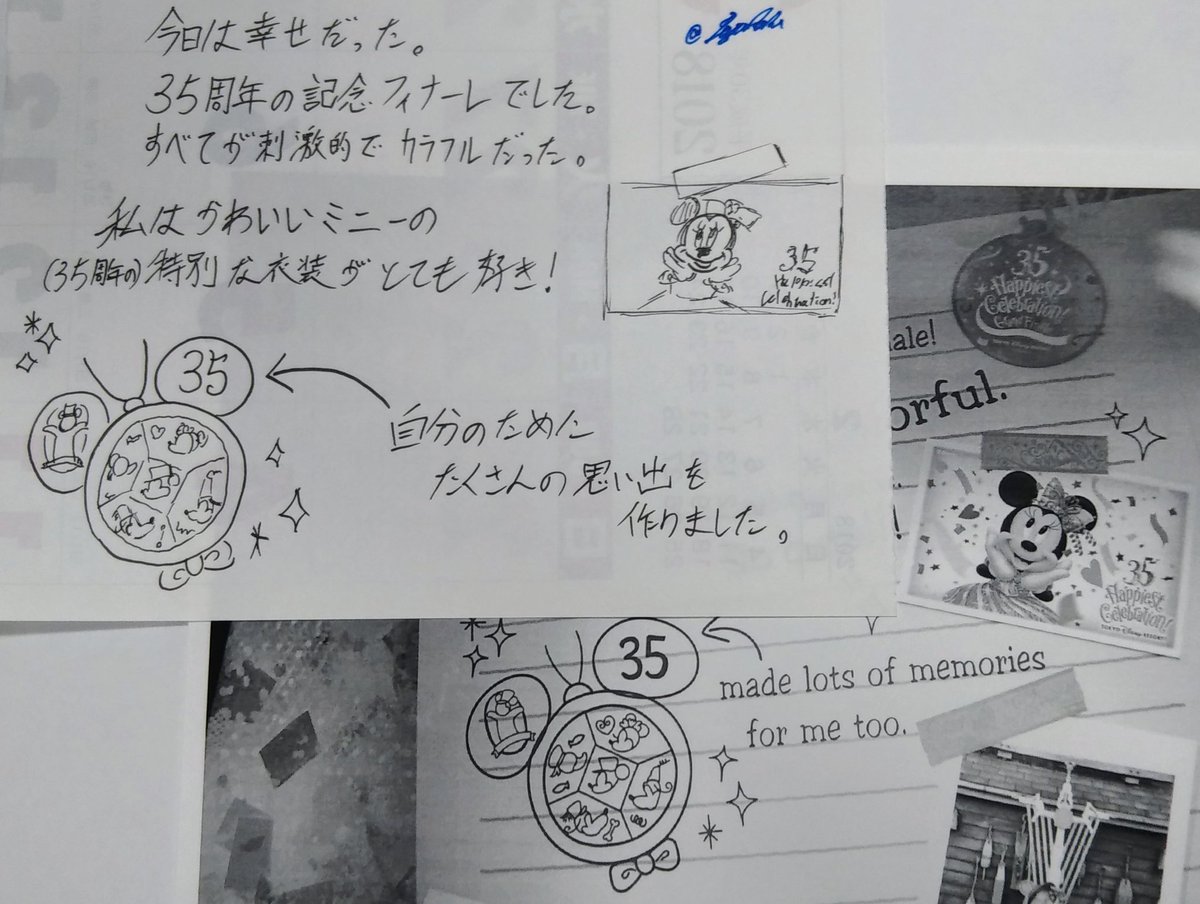 今日は幸せだった。
35周年の記念フィナーレでした。
すべてが刺激的でカラフルだった。
私はかわいいミニーの
(35周年の)特別な衣装がとても好き！
35
Happiest
Celebration!
35
自分のためた
たくさんの思い出を
作りました。
2018
35
Happiest
Celebration!
Grand Finale
TOKYO DISNEY RESORT
ale!
orful.
35
Happiest
Celebration!
TOKYO DISNEY RESORT
35
made lots of memories
for me too.